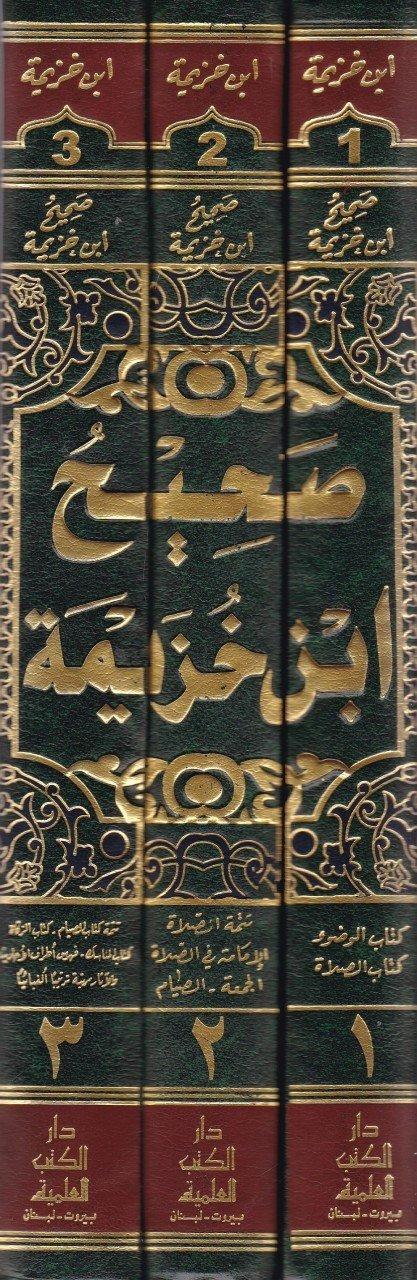 ابن خزيمة
1
صحيح
ابن خزيمة
ابن خزيمة
2
صحيح
ابن خزيمة
ابن خزيمة
3
صحيح
ابن خزيمة
صَحِيْحُ
ابْن خُزَيْمَة
كتاب الوضوء
كتاب الصلاة
١
دار
الكتب
العلمية
بيروت - لبنان
تتمة الصلاة
الإمامة في الصلاة
الجمعة - الصيام
٢
دار
الكتب
العلمية
بيروت - لبنان
تتمة كتاب الصيام . كتاب الزكاة
كتاب المناسك - فهرس أطراف الأحاديث
والآثار مرتبة ترتيبًا ألفبائيًا
٣
دار
الكتب
العلمية
بيروت - لبنان